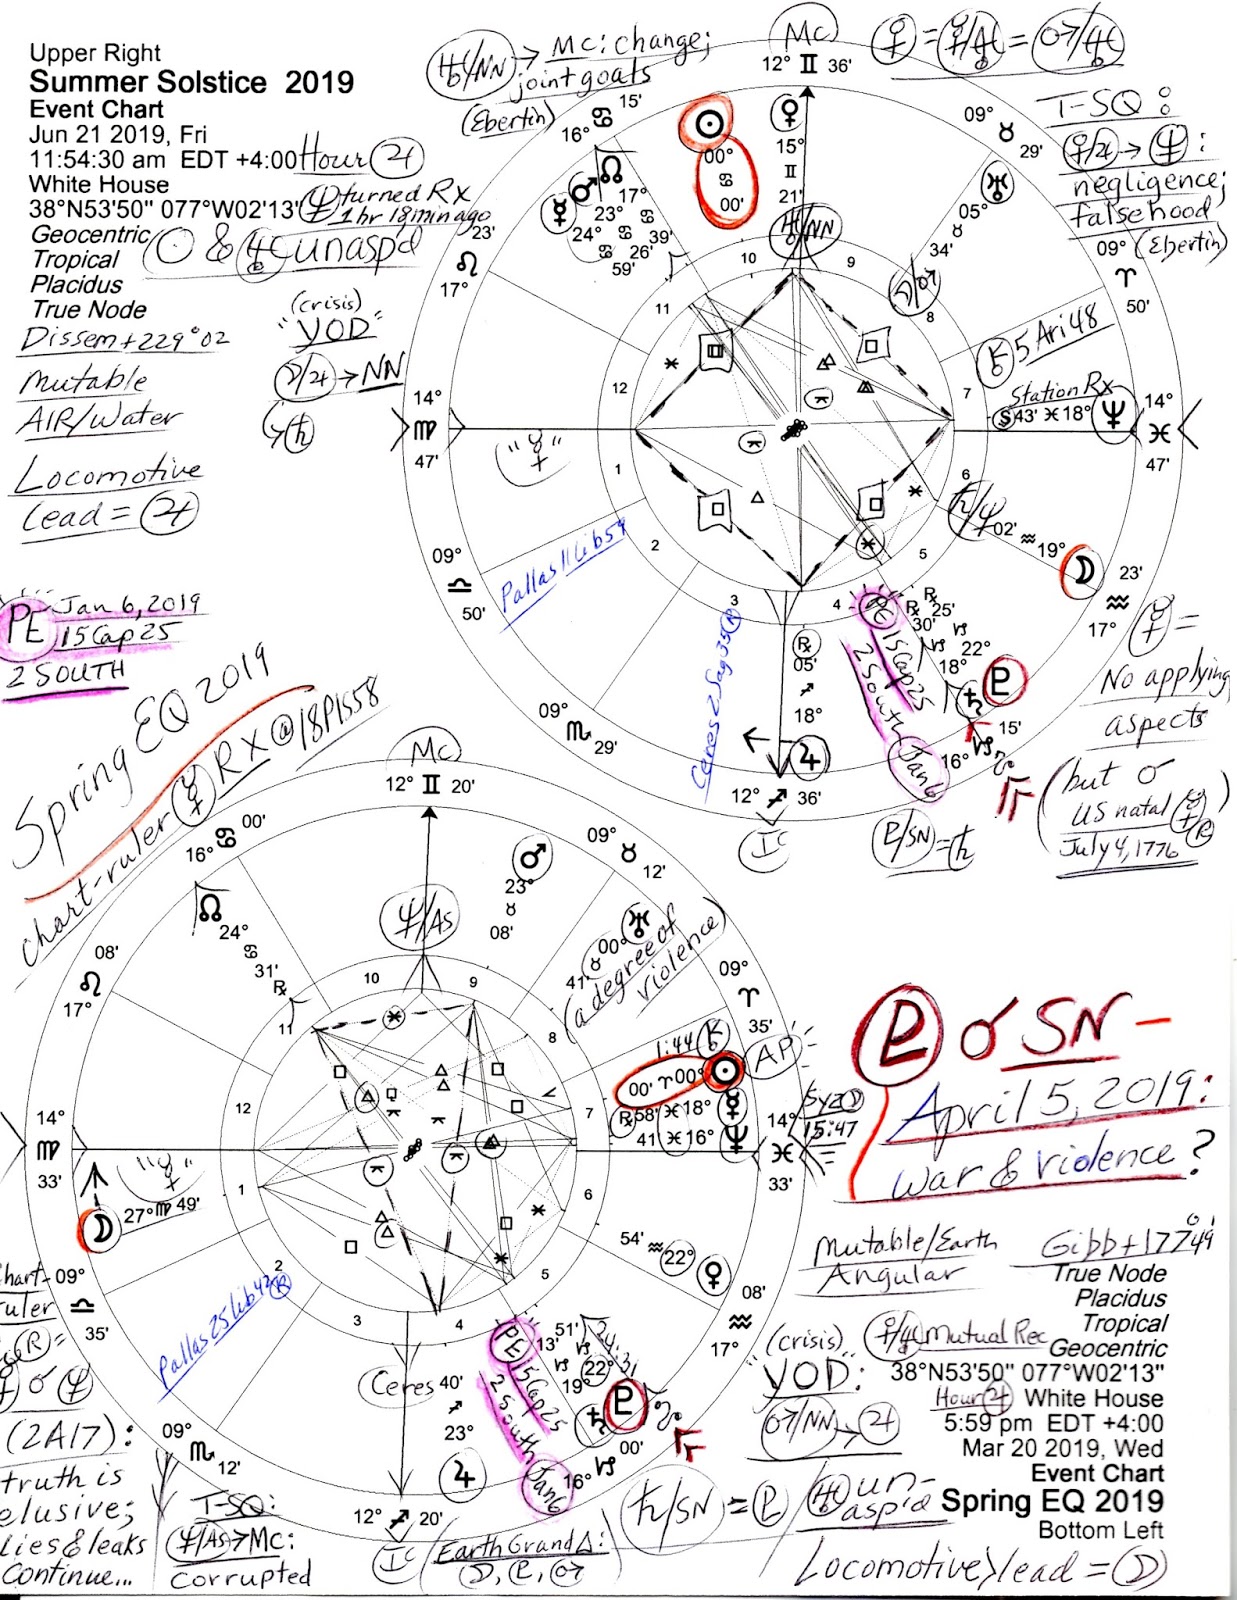 Upper Right
Summer Solstice 2019
Event Chart
Jun 21 2019, Fri
11:54:30 am EDT +4:00 Hour ♃
White House
38°N53'50" 077°W02'13"
♆ turned Rx
1 hr 18 min ago
Geocentric
Tropical
Placidus
True Node
☉ & ♅ unasp'd
Dissem +229°02
Mutable
AIR/Water
Locomotive
Lead = ♃
(crisis)
"YOD"
☽/♃ → NN
↳ ♄
♅/NN → Mc: change;
joint goals
(Ebertin)
Mc
12° ♊ 36'
♀ = ♀/♅ = ♂/♅
T-SQ:
♀/♃ → ♆:
negligence;
falsehood
(Ebertin)
16° ♋ 15'
☊
17°
♋
39'
♂
23°
♋
26'
☿
24°
♋
59'
☉
00°
♋
00'
♀
15°
♊
21'
♅/NN
09° ♉ 29'
♅
05°
♉
34'
☽/♂
09°
♈
50'
⚷ 5 Ari 48
Station Rx
S 43' ♓ 18° ♆
14°
♓
47'
23'
♌
17°
14°
♍
47'
"☿"
09°
♎
50'
Pallas 11 Lib 59
09°
♏ 29'
Ceres 2 Sag 35 R
℞
05'
♐
18°
♃
12° ♐ 36'
Ic
PE 15 Cap 25
2 South
Jan 6
℞ 25'
℞ 30'
♑
♑ 22°
18°
♄
♇
15'
♑
16°
♄/♆
02' ♒ 19° ☽
23'
♒
17°
10
9
11
8
12
7
1
6
2
5
3
4
☿ =
No applying
aspects
(but ☌
US natal ☿ R)
July 4, 1776
♇/SN = ♄
PE Jan 6, 2019
15 Cap 25
2 SOUTH
Spring EQ 2019
chart-ruler ☿ Rx @ 18 PIS 58
Mc
12° ♊ 20'
16° ♋ 00'
☊
24°
♋
31'
℞
♆/AS
♂
23°
♉
08'
09°
♉
12'
♅
00°
♉
41'
(a degree of
violence)
09°
♈
35'
1:44 ⚷
AP
00' ♈ 00° ☉
℞ 58' ♓ 18° ☿
41 ♓ 16° ♆
Syz
15:47
14°
♓
33'
08'
♌
17°
14°
♍
33'
"☿"
☽ 27° ♍ 49'
09°
♎
35'
Pallas 25 Lib 42 R
09°
♏
12'
Ceres 40'
♐
23°
♃
12° ♐ 20'
Ic
PE 15 Cap 25
2 South
Jan 6
13'
♑
19°
♄
51'
♑
22°
♇
24:31
00'
♑
16°
54' ♒ 22° ♀
08'
♒
17°
10
9
11
8
12
7
1
6
2
5
3
4
♇ ☌ SN –
April 5, 2019:
war & violence?
Mutable/Earth
Angular
Gibb +177°49'
True Node
Placidus
Tropical
Geocentric
38°N53'50" 077°W02'13"
Hour ♃ White House
5:59 pm EDT +4:00
Mar 20 2019, Wed
Event Chart
Spring EQ 2019
Bottom Left
♀/♅ Mutual Rec
(crisis)
YOD:
♂/NN → ♃
♅ un-
asp'd
♄/SN = ♇
Locomotive) lead = ☽
ruler
(2A17):
truth is
elusive;
lies & leaks
continue...
T-SQ:
♆/AS → Mc:
corrupted
Earth Grand △:
☽, ♇, ♂